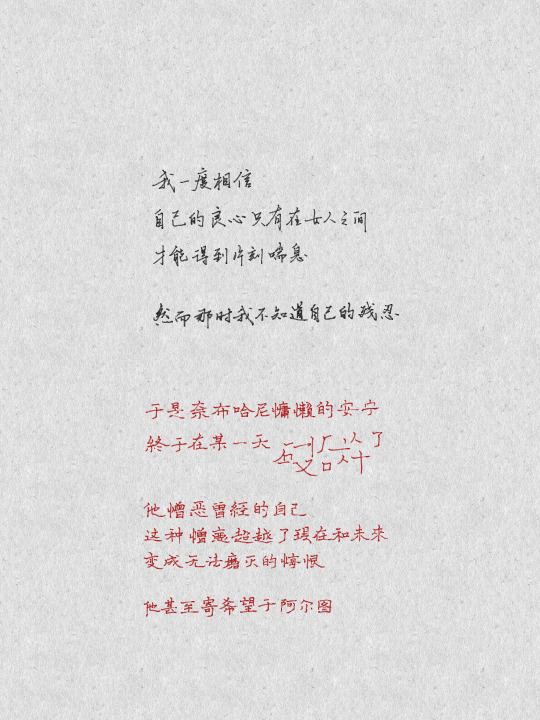 我一度相信
自己的良心只有在女人之间
才能得到片刻喘息
然而那时我不知道自己的残忍
于是奈布哈尼慵懶的安宁
終于在某一天 了
他憎恶曾経的自己
这种憎恶超越了现在和未来
变成无法磨灭的恨
他甚至寄希望于阿尔图